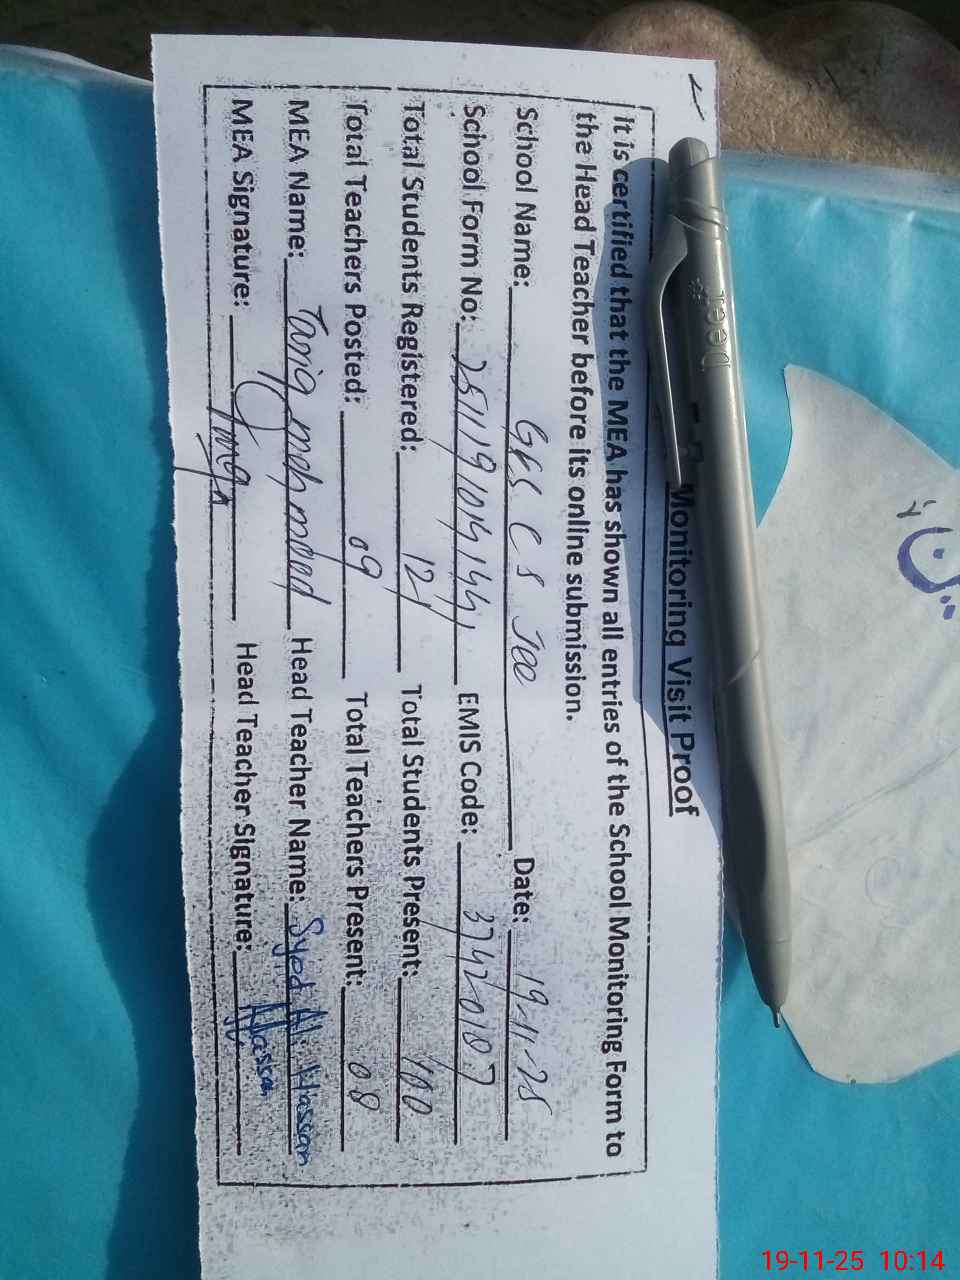 Monitoring Visit Proof
It is certified that the MEA has shown all entries of the School Monitoring Form to
the Head Teacher before its online submission.
School Name: C S Jee Date: 19-11-25
School Form No: EMIS Code: 37420107
Total Students Registered: 121 Total Students Present: 100
Total Teachers Posted: 09 Total Teachers Present: 08
MEA Name: Tariq mehmood Head Teacher Name: Syed Ali Hassan
MEA Signature: Head Teacher Signature: Hassan
Deer
19-11-25 10:14